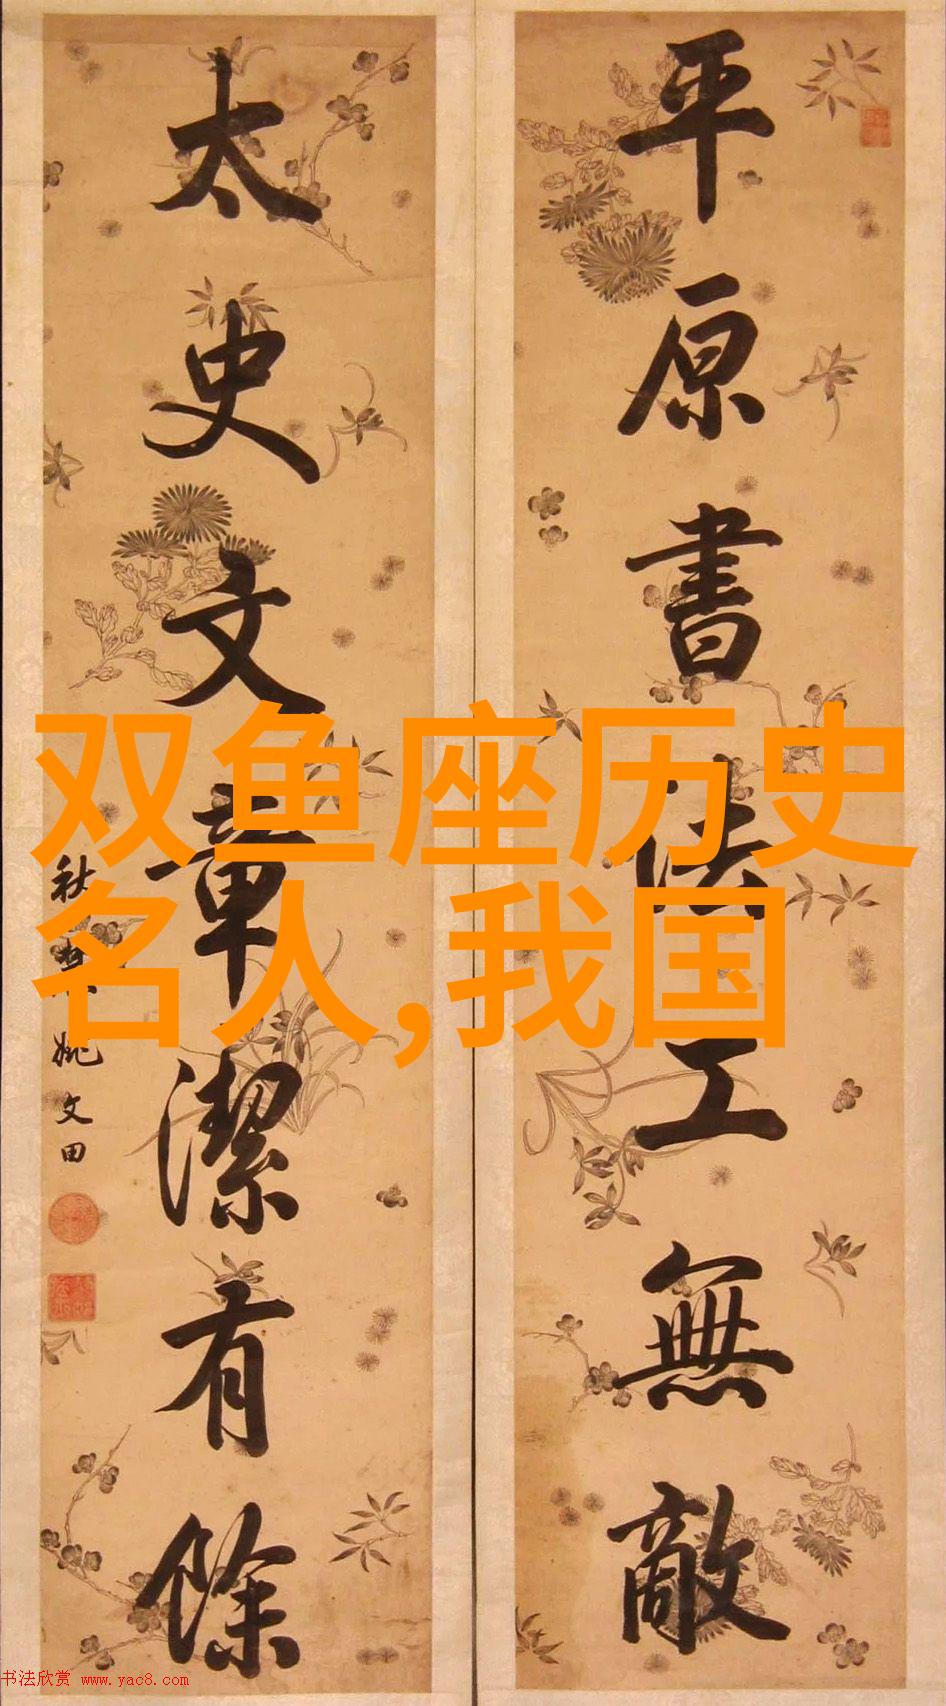 平原書法工無敵
太史文章潔有餘
秋農姚文田
双鱼座历史
名人,我国
书法欣赏 www.yac8.com